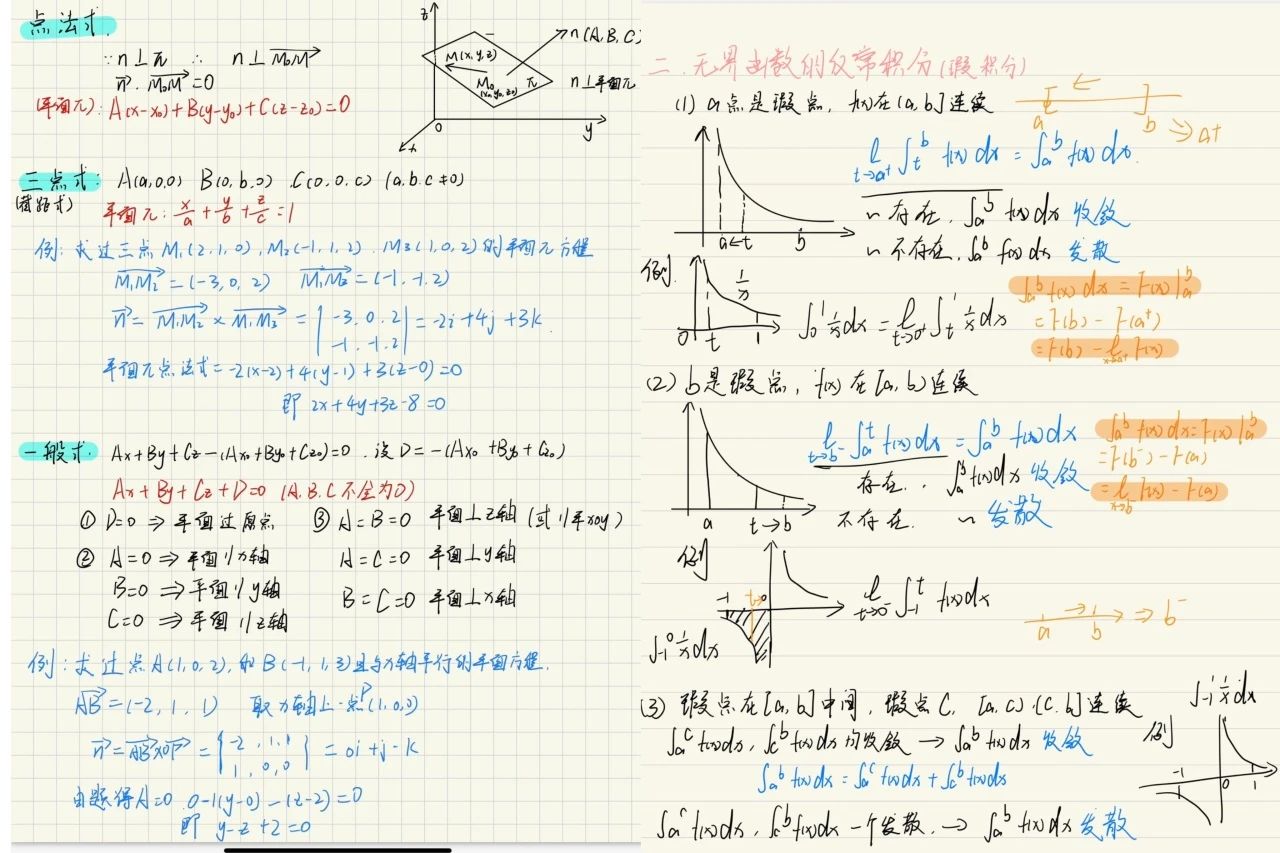 点法式
∵ n⊥π ∴ n⊥M₀M→
n→·M₀M→=0
(平面π): A(x-x₀)+B(y-y₀)+C(z-z₀)=0
z
n(A,B,C)
M(x,y,z)
M₀
(x₀,y₀,z₀)
π
n⊥平面π
0
y
x
三点式: A(a,0,0) B(0,b,0) C(0,0,c) (a.b.c≠0)
(截距式)
平面π: x/a+y/b+z/c=1
例: 求过三点M₁(2,1,0), M₂(-1,1,2), M₃(1,0,2)的平面π方程
M₁M₂→=(-3,0,2) M₁M₃→=(-1,-1,2)
n→=M₁M₂→×M₁M₃→=|-3,0,2
-1,-1,2|=2i+4j+3k
平面π点法式=2(x-2)+4(y-1)+3(z-0)=0
即 2x+4y+3z-8=0
一般式. Ax+By+Cz-(Ax₀+By₀+Cz₀)=0. 设D=-(Ax₀+By₀+Cz₀)
Ax+By+Cz+D=0 (A.B.C不全为0)
① D=0 ⇒ 平面过原点 ③ A=B=0 平面⊥z轴(或∥平xoy)
② A=0 ⇒ 平面∥x轴 A=C=0 平面⊥y轴
B=0 ⇒ 平面∥y轴 B=C=0 平面⊥x轴
C=0 ⇒ 平面∥z轴
例: 求过点A(1,0,2), 和B(-1,1,3)且与x轴平行的平面方程.
AB→=(-2,1,1) 取x轴上一点P(1,0,0)
n→=AB→×OP→=|-2,1,1
1,0,0|=0i+j-k
由题得A=0 0-1(y-0)-(z-2)=0
即 y-z+2=0
二.无界函数的反常积分(瑕积分)
(1) a点是瑕点, f(x)在(a,b]连续
a b ⇒a+
l t→a⁺ ∫ₜᵇ f(x)dx=∫ₐᵇ f(x)dx.
~存在, ∫ₐᵇ f(x)dx 收敛
~不存在. ∫ₐᵇ f(x)dx 发散
a←t b
例.
1/x
0 t 1
∫₀¹ 1/x dx=l t→0⁺ ∫ₜ¹ 1/x dx
∫ₐᵇ f(x)dx=F(x)|ₐᵇ
=F(b)-F(a⁺)
=F(b)-l x→a⁺ F(x)
(2) b是瑕点, f(x)在[a,b)连续
l t→b⁻ ∫ₐᵗ f(x)dx=∫ₐᵇ f(x)dx
存在, ∫ₐᵇ f(x)dx 收敛
不存在. ~发散
a t→b
∫ₐᵇ f(x)dx=F(x)|ₐᵇ
=F(b⁻)-F(a)
=l x→b⁻ F(x)-F(a)
例
-1 t→0
l t→0⁻ ∫₋₁ᵗ f(x)dx
∫₋₁⁰ 1/x dx
a b ⇒b⁻
(3) 瑕点在[a,b]中间, 瑕点C. [a,c).(c.b]连续
∫ₐᶜ f(x)dx, ∫꜀ᵇ f(x)dx 均收敛 → ∫ₐᵇ f(x)dx 收敛
∫ₐᵇ f(x)dx=∫ₐᶜ f(x)dx+∫꜀ᵇ f(x)dx
∫ₐᶜ f(x)dx, ∫꜀ᵇ f(x)dx 一个发散. → ∫ₐᵇ f(x)dx 发散
例
∫₋₁¹ 1/x dx
-1 0 1